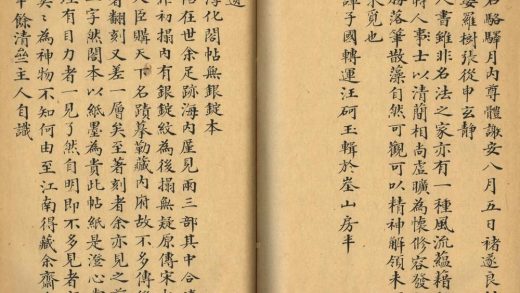 駱驛月内尊體諏安八月五日褚遂良
婆羅樹張從申玄靜
人書雖非名法之家亦有一種風流蘊藉
時人事士以清簡相尚虛曠為懷脩容發
勝落筆散藻自然可觀可以精神解領未
求覓也
諱子國轉運汪砢玉輯於崟山房半
遺
淳化閣帖無銀錠本
帖在世余足跡海内屢見兩三部其中合
非初搨内有銀錠紋為後搨無疑原傳宋
大臣購天下名蹟摹勒藏内府故不多傳後
者翻刻又差一層矣至著刻者余亦見之
二字然閣本以紙墨為貴此帖紙是澄心
有目力者一見了然自明即不多見者
為神物不知何由至江南得藏余齋
年餘清齋主人自識